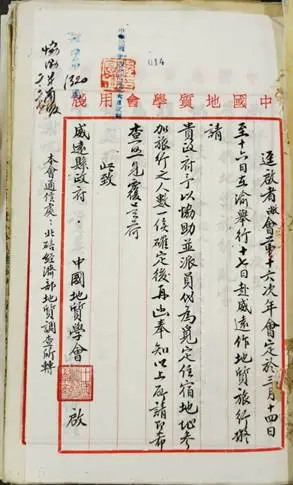 中國地質學會用牋
逕啟者敝會第十六次年會定於三月十四日
至十六日在渝舉行十七日赴威遠作地質旅行擬
請
貴政府予以協助並派員代為覓定住宿地址參
加旅行之人數一俟確定後再函奉知以上所請即希
查照見覆為荷
此致
威遠縣政府
中國地質學會 啟
本會通信處：北碚經濟部地質調查所轉
014
1320